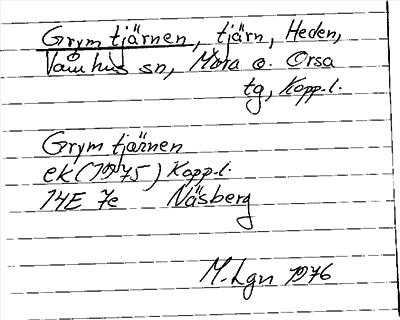 Grymtjärnen, tjärn, Heden,
Våmhus sn, Mora o. Orsa
tg, Kopp.l.
Grymtjärnen
ek (1975) Kopp.l.
14E 7e Näsberg
M. Lgn 1976